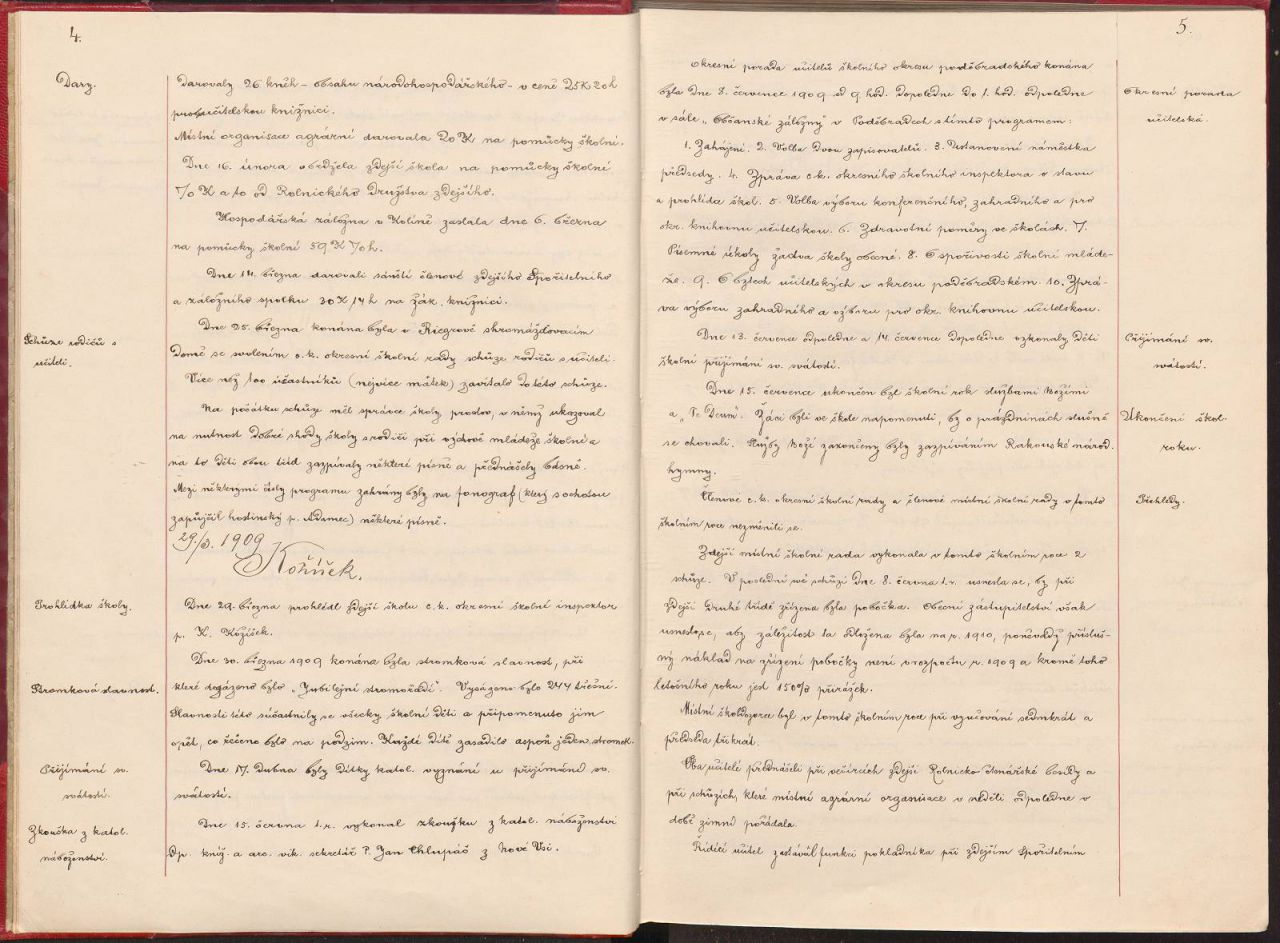 4.
Dary.
Darovaly 26 kněh - obsahu národohospodářského - v ceně 25 K 20 h
pro učitelskou knižnici.
Místní organisace agrární darovala 20 K na pomůcky školní.
Dne 16. února obdržela zdejší škola na pomůcky školní
70 K a to od Rolnického Družstva zdejšího.
Hospodářská záložna v Kolíně zaslala dne 6. března
na pomůcky školní 59 K 70 h.
Dne 14. března darovali členové zdejšího Spořitelního
a záložního spolku 30 K 14 h na žák. knižnici.
Schůze rodičů s
učiteli.
Dne 25. března konána byla v Riegrově shromažďovacím
domě se svolením c. k. okresní školní rady schůze rodičů s učiteli.
Více než 100 účastníků (nejvíce matek) zavítalo do této schůze.
Na počátku schůze měl správce školy proslov, v němž ukazoval
na nutnost dobré shody školy s rodiči při výchově mládeže školní a
na to děti obou tříd zazpívaly některé písně a přednášely básně.
Mezi některými čísly programu zahrány byly na fonograf (který s ochotou
zapůjčil hostinský p. Adamec) některé písně.
29./3. 1909
Kožíšek.
Prohlídka školy.
Dne 29. března prohlédl zdejší školu c. k. okresní školní inspektor
p. K. Kožíšek.
Dne 30. března 1909 konána byla stromková slavnost, při
Stromková slavnost.
které vysázeno bylo "Jubilejní stromořadí". Vysázeno bylo 244 třešní.
Slavnosti této súčastnily se všecky školní děti a připomenuto jim
opět, co řečeno bylo na podzim. Každé dítě zasadilo aspoň jeden stromek.
Přijímání sv.
svátostí.
Dne 17. dubna byly dítky katol. vyznání u přijímání sv.
svátostí.
Zkouška z katol.
náboženství.
Dne 15. června t. r. vykonal zkoušku z katol. náboženství
Dp. kníž. a arc. vik. sekretář P. Jan Chlupáč z Nové Vsi.
5.
Okresní porada
učitelská.
Okresní porada učitelů školního okresu poděbradského konána
byla dne 8. července 1909 od 9 hod. dopoledne do 1. hod. odpoledne
v sále "Občanské záložny" v Poděbradech s tímto programem:
1. Zahájení. 2. Volba dvou zapisovatelů. 3. Ustanovení náměstka
předsedy. 4. Zpráva c. k. okresního školního inspektora o stavu
a prohlídce škol. 5. Volba výboru konferenčního, zahradního a pro
okr. knihovnu učitelskou. 6. Zdravotní poměry ve školách. 7.
Písemné úkoly žactva školy obecné. 8. O spořivosti školní mláde-
že. 9. O bytech učitelských v okresu poděbradském. 10. Zprá-
va výboru zahradního a výboru pro okr. knihovnu učitelskou.
Přijímání sv.
svátostí.
Dne 13. července odpoledne a 14. července dopoledne vykonaly děti
školní přijímání sv. svátostí.
Ukončení škol.
roku.
Dne 15. července ukončen byl školní rok službami Božími
a "Te Deum". Žáci byli ve škole napomenuti, by o prázdninách slušně
se chovali. Služby Boží zakončeny byly zazpíváním Rakouské národ.
hymny.
Přehledy.
Členové c. k. okresní školní rady a členové místní školní rady v tomto
školním roce nezměnili se.
Zdejší místní školní rada vykonala v tomto školním roce 2
schůze. V poslední své schůzi dne 8. června t. r. usnesla se, by při
zdejší druhé třídě zřízena byla pobočka. Obecní zastupitelství však
usneslo se, aby záležitost ta odložena byla na r. 1910, poněvadž přísluš-
ný náklad na zřízení pobočky není v rozpočtu r. 1909 a kromě toho
letošního roku jest 150% přirážek.
Místní školdozorce byl v tomto školním roce při vyučování sedmkrát a
předseda třikrát.
Oba učitelé přednášeli při večírcích zdejší Rolnicko-čtenářské besedy a
při schůzích, které místní agrární organisace v neděli odpoledne v
době zimní pořádala.
Řídící učitel zastával funkci pokladníka při zdejším Spořitelním